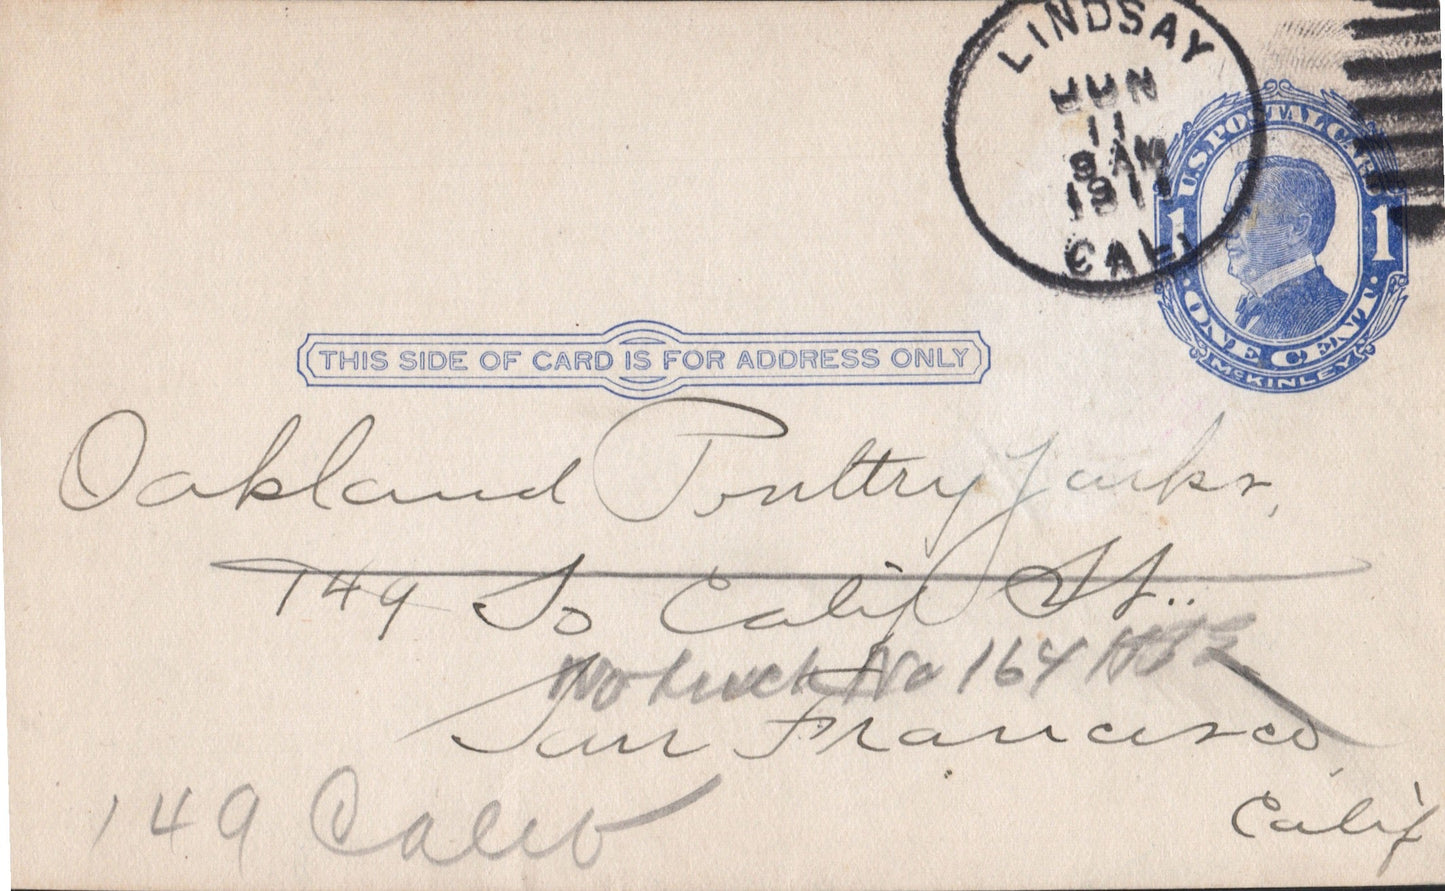 LINDSAY
JUN
11
9 AM
1911
CAL.
U.S. POSTAL CARD
1 1
ONE CENT.
McKINLEY
THIS SIDE OF CARD IS FOR ADDRESS ONLY
Oakland Poultry Yards,
149 So Calif St..
No 164
San Francisco,
Calif
149 Calif